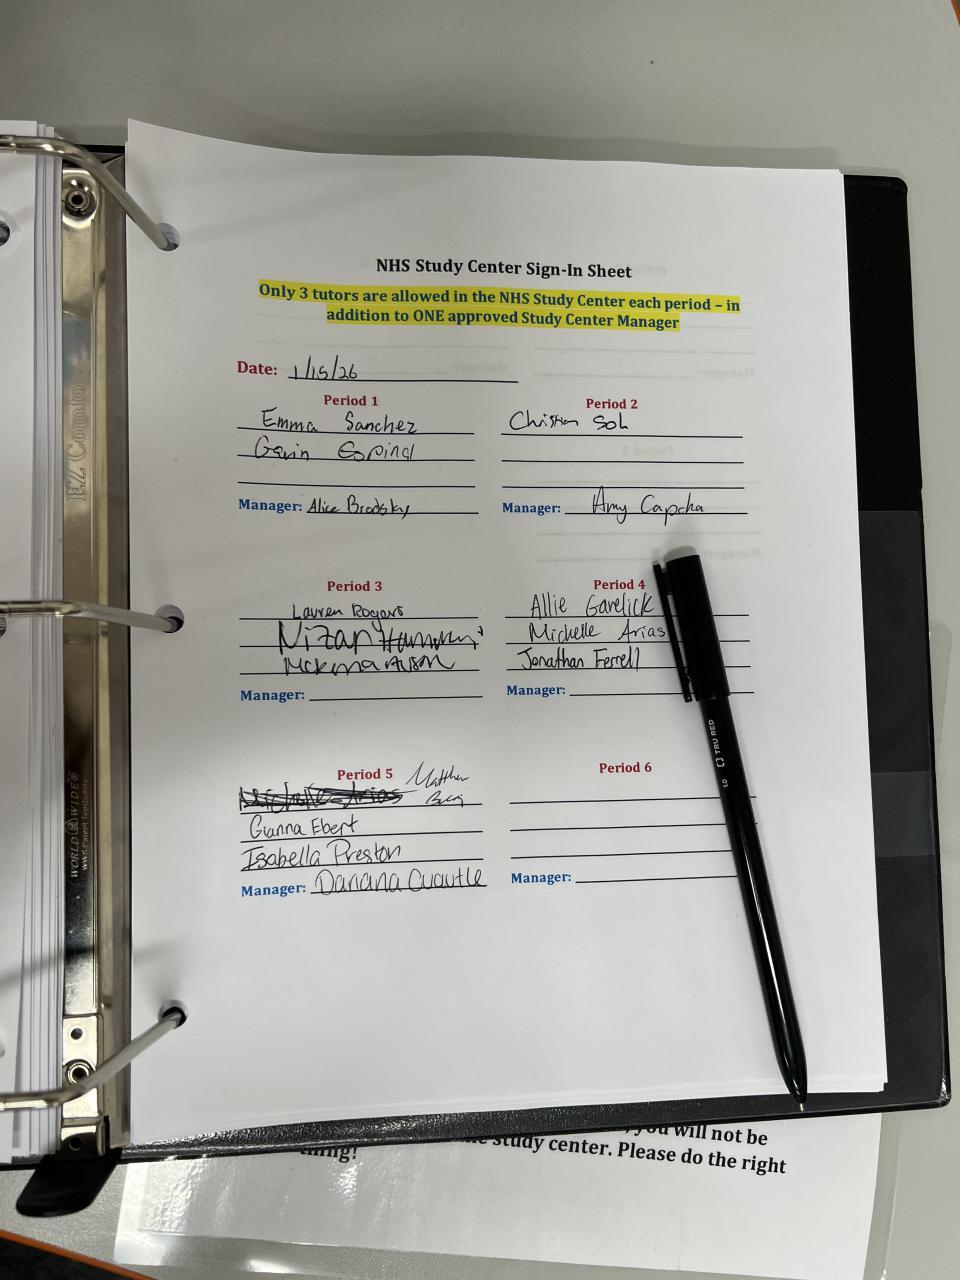 NHS Study Center Sign-In Sheet
Only 3 tutors are allowed in the NHS Study Center each period – in
addition to ONE approved Study Center Manager
Date: 1/15/26
Period 1
Emma Sanchez
Gavin Espinal
Manager: Alice Brodsky
Period 2
Christian Soh
Manager: Amy Capcha
Period 3
Lauren Rogers
Nizan
Manager:
Period 4
Allie Garelick
Michelle Arias
Jonathan Ferrell
Manager:
Period 5
Michelle Arias
Matthew
Gianna Ebert
Isabella Preston
Manager: Danana Cuautle
Period 6
Manager:
TRU RED
1.0
WORLD WIDE®
you will not be
study center. Please do the right
thing!